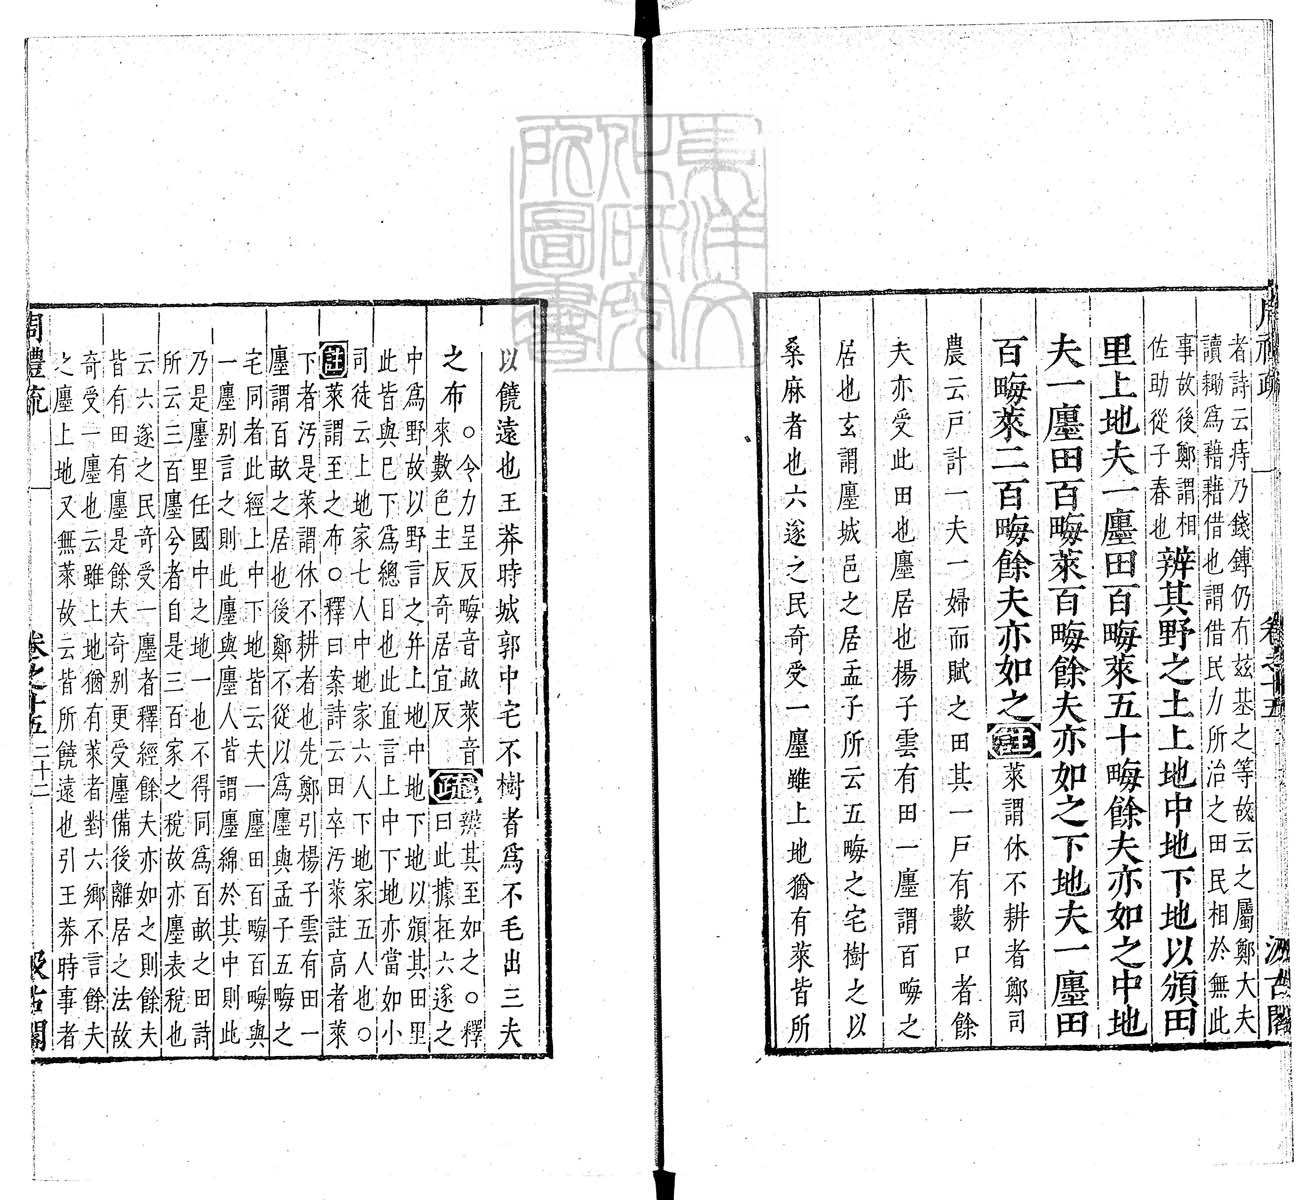 者詩云庤乃錢鎛仍有玆基之等故云之屬鄭大夫
讀耡爲藉藉借也謂借民力所治之田民相於無此
事故後鄭謂相
佐助從子春也
辨其野之土上地中地下地以頒田
里上地夫一廛田百畮萊五十畮餘夫亦如之中地
夫一廛田百畮萊百畮餘夫亦如之下地夫一廛田
百畮萊二百畮餘夫亦如之註萊謂休不耕者鄭司
農云戸計一夫一婦而賦之田其一戸有數口者餘
夫亦受此田也廛居也楊子雲有田一廛謂百畮之
居也玄謂廛城邑之居孟子所云五畮之宅樹之以
桑麻者也六遂之民奇受一廛雖上地猶有萊皆所
卷之十五
汲古閣
以饒遠也王莽時城郭中宅不樹者爲不毛出三夫
之布
○今力呈反畮音故萊音
來數色主反奇居宜反
疏
辨其至如之○釋
曰此據在六遂之
中爲野故以野言之幷上地中地下地以頒其田里
此皆與巳下爲總目也此直言上中下地亦當如小
司徒云上地家七人中地家六人下地家五人也○
註萊謂至之布○釋曰案詩云田卒汚萊註高者萊
下者汚是萊謂休不耕者也先鄭引楊子雲有田一
廛謂百畝之居也後鄭不從以爲廛與孟子五畮之
宅同者此經上中下地皆云夫一廛田百畮百畮與
一廛別言之則此廛與廛人皆謂廛綿於其中則此
乃是廛里任國中之地一也不得同爲百畝之田詩
所云三百廛兮者自是三百家之稅故亦廛表稅也
云六遂之民奇受一廛者釋經餘夫亦如之則餘夫
皆有田有廛是餘夫奇別更受廛備後離居之法故
奇受一廛也云雖上地猶有萊者對六鄕不言餘夫
之廛上地又無萊故云皆所饒遠也引王莽時事者
周禮疏
卷之十五
二十二
汲古閣
東洋文化研究所圖書